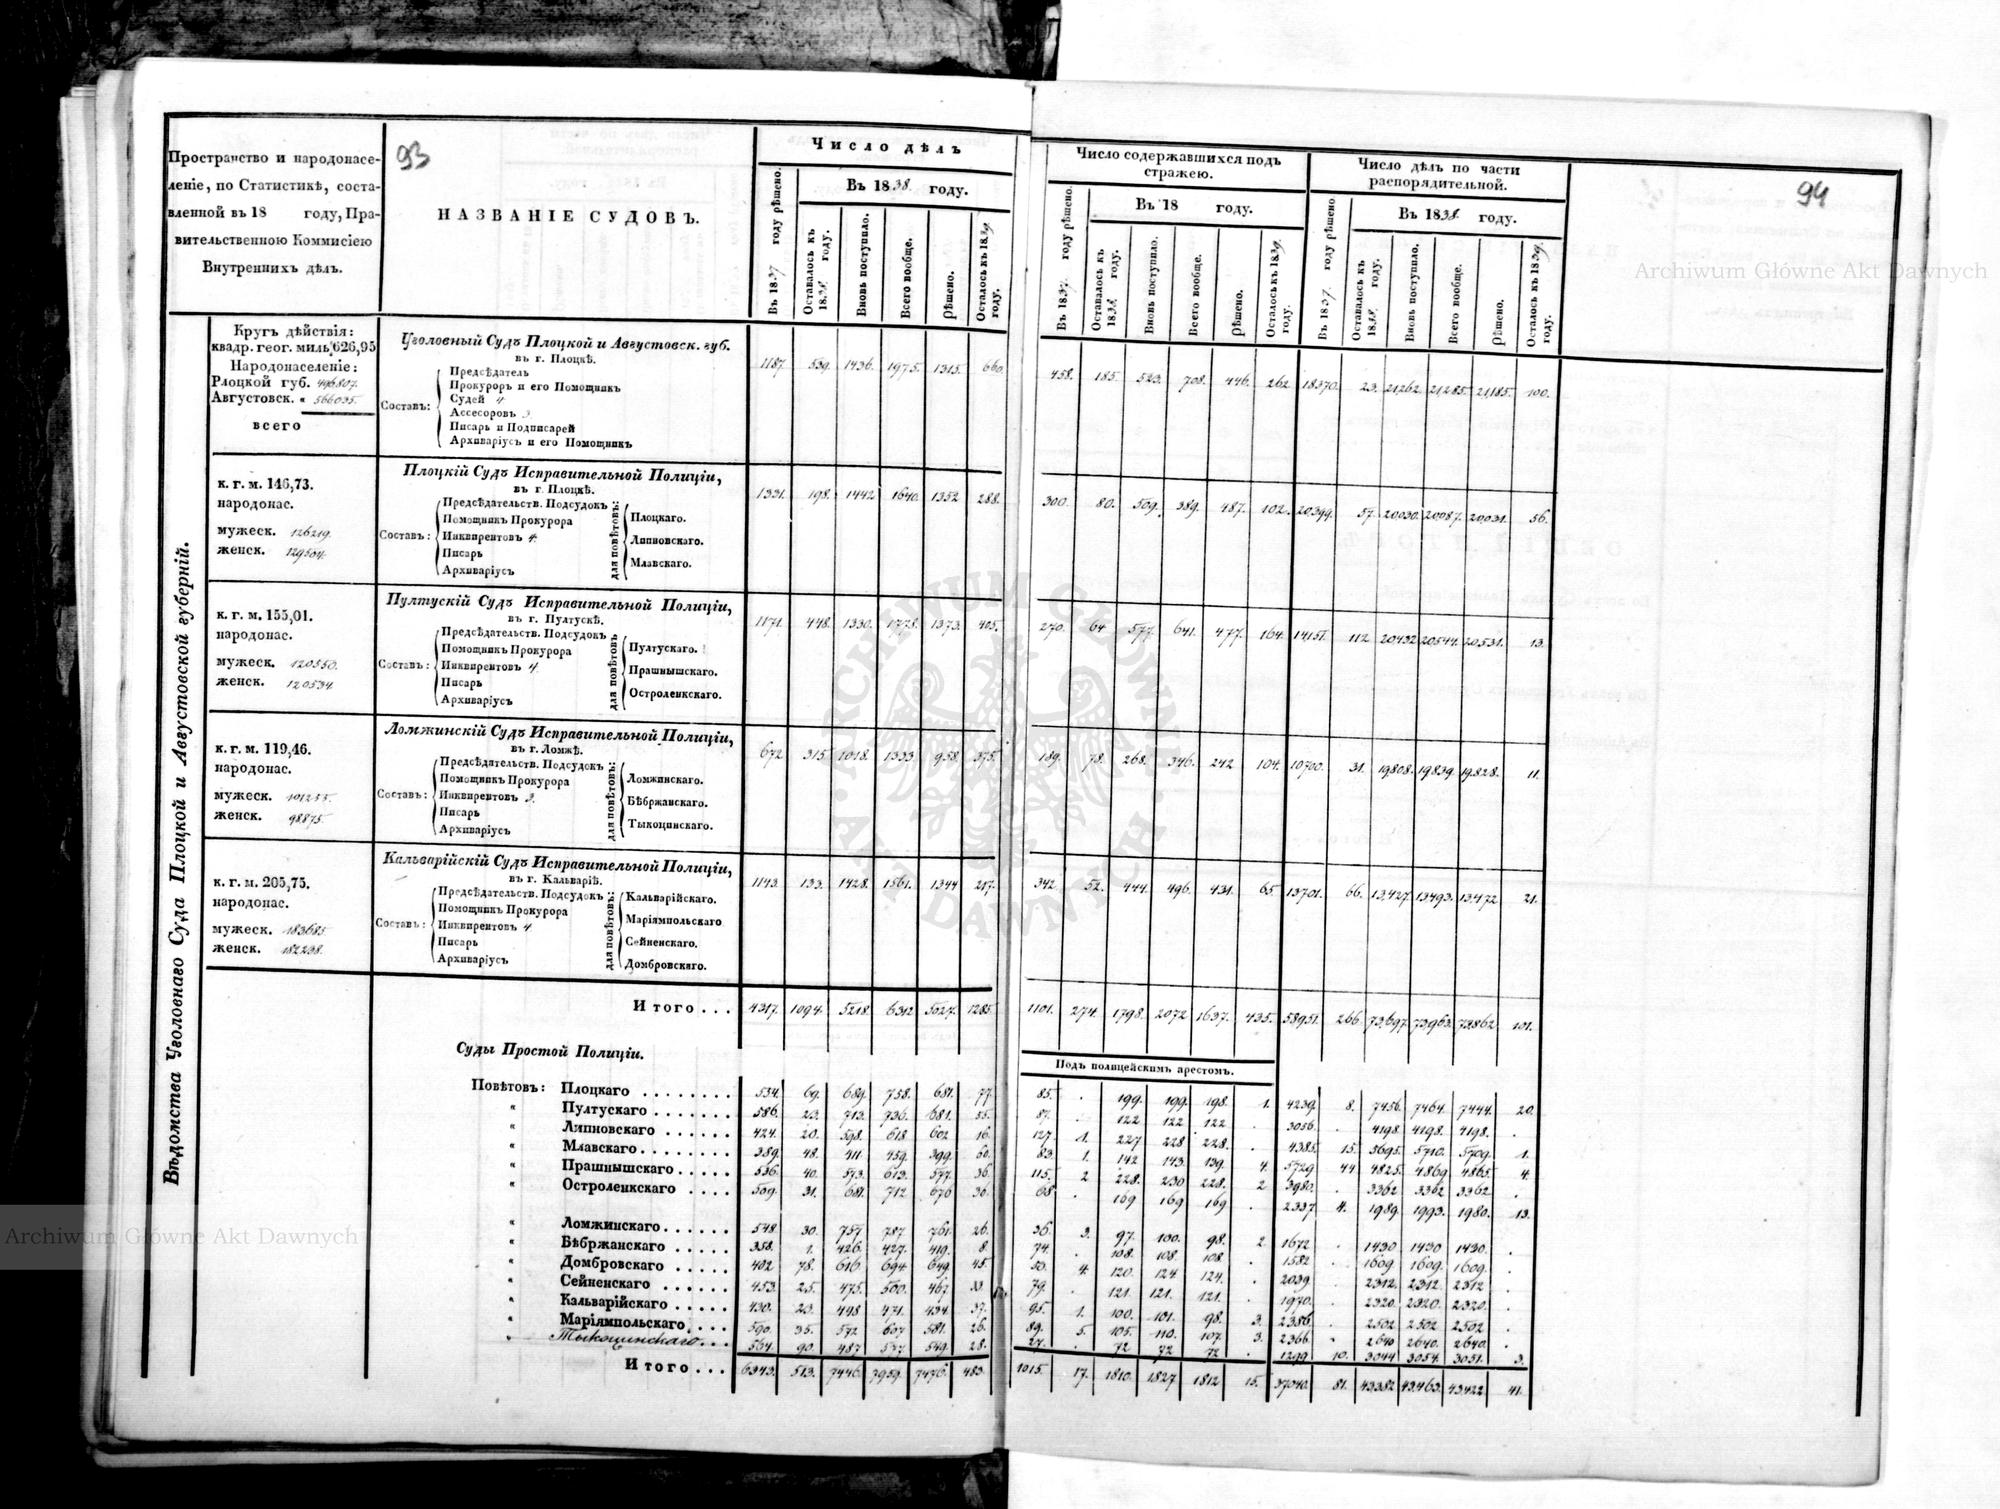 93
94
Пространство и народонасе-
леніе, по Статистикѣ, соста-
вленной въ 18 году, Пра-
вительственною Коммисіею
Внутреннихъ дѣлъ.
НАЗВАНІЕ СУДОВЪ.
Число дѣлъ
Въ 1837 году рѣшено.
Въ 1838. году.
Оставалось къ 1838. году.
Вновь поступило.
Всего вообще.
Рѣшено.
Осталось къ 1839. году.
Число содержавшихся подъ стражею.
Въ 1837. году рѣшено.
Въ 18 году.
Оставалось къ 1838. году.
Вновь поступило.
Всего вообще.
Рѣшено.
Осталось къ 1839. году.
Число дѣлъ по части распорядительной.
Въ 1837. году рѣшено.
Въ 1838. году.
Оставалось къ 1838. году.
Вновь поступило.
Всего вообще.
Рѣшено.
Осталось къ 1839. году.
Вѣдомства Уголовнаго Суда Плоцкой и Августовской губерній.
Кругъ дѣйствія:
квадр. геог. миль 626,95
Народонаселеніе:
Плоцкой губ. 496807.
Августовск. " 566035.
всего
Уголовный Судъ Плоцкой и Августовск. губ.
въ г. Плоцкѣ.
Составъ:
Предсѣдатель
Прокуроръ и его Помощникъ
Судей 4
Ассесоровъ 3.
Писарь и Подписарей
Архиваріусъ и его Помощникъ
1187. 539. 1436. 1975. 1315. 660.
458. 185. 523. 708. 446. 262 18370. 23. 21262. 21285. 21185. 100.
к. г. м. 146,73.
народонас.
мужеск. 126219.
женск. 129504.
Плоцкій Судъ Исправительной Полиціи,
въ г. Плоцкѣ.
Составъ:
Предсѣдательств. Подсудокъ
Помощникъ Прокурора
Инквирентовъ 4.
Писарь
Архиваріусъ
для повѣтовъ:
Плоцкаго.
Липновскаго.
Млавскаго.
1331. 198. 1442. 1640. 1352 288.
300. 80. 509. 389. 487. 102. 20,399. 57. 20030. 20087. 20031. 56.
к. г. м. 155,01.
народонас.
мужеск. 120550.
женск. 120534.
Пултускій Судъ Исправительной Полиціи,
въ г. Пултускѣ.
Составъ:
Предсѣдательств. Подсудокъ
Помощникъ Прокурора
Инквирентовъ 4.
Писарь
Архиваріусъ
для повѣтовъ
Пултускаго.
Прашнышскаго.
Остроленкскаго.
1171. 448. 1330. 1778. 1373. 405.
270. 64 577. 641. 477. 164. 14151. 112. 20432 20544. 20531. 13.
к. г. м. 119,46.
народонас.
мужеск. 101255.
женск. 98875.
Ломжинскій Судъ Исправительной Полиціи,
въ г. Ломжѣ.
Составъ:
Предсѣдательств. Подсудокъ
Помощникъ Прокурора
Инквирентовъ 3.
Писарь
Архиваріусъ
для повѣтовъ:
Ломжинскаго.
Бѣбржанскаго.
Тыкоцинскаго.
672 315. 1018. 1333. 958. 375.
189. 78. 268. 346. 242 104. 10700. 31. 19808. 19839. 19828. 11.
к. г. м. 205,75.
народонас.
мужеск. 183685.
женск. 182238.
Кальварійскій Судъ Исправительной Полиціи,
въ г. Кальваріѣ.
Составъ:
Предсѣдательств. Подсудокъ
Помощникъ Прокурора
Инквирентовъ 4
Писарь
Архиваріусъ
для повѣтовъ:
Кальварійскаго.
Маріямпольскаго
Сейненскаго.
Домбровскаго.
1143. 133. 1428. 1561. 1344 217.
342. 52. 444. 496. 431. 65 13701. 66. 13,427. 13493. 13472 21.
Итого... 4317. 1094. 5218. 6312 5027. 1285.
1101. 274. 1798. 2072 1637. 435. 58951. 266. 73,697. 73,963. 73862. 101.
Суды Простой Полиціи.
Подъ полицейскимъ арестомъ.
Повѣтовъ: Плоцкаго 534. 69. 689. 758. 681. 77. 85. . 199. 199. 198. 1. 4239. 8. 7456. 7464. 7444. 20.
" Пултускаго 586. 23. 713. 736. 681. 55. 87. . 122 122 122 . 3056. . 4198. 4198. 4198. .
" Липновскаго 424. 20. 598. 618 602 16. 127. 1. 227 228 228. . 4385. 15. 5695. 5710. 5709. 1.
" Млавскаго 389. 48. 411 459. 399. 60. 83. 1. 142 143. 139. 4. 5729. 44 4825. 4869. 4865. 4.
" Прашнышскаго 536. 40. 573. 613. 577. 36. 115. 2 228. 230 228. 2 3980. . 3362 3362 3362 .
" Остроленкскаго 509. 31. 681. 712 676 36. 68. . 169 169 169 . 2337 4. 1989. 1993. 1980. 13.
" Ломжинскаго 548 30. 757. 787. 761. 26. 36. 3. 97. 100. 98. 2 1672 . 1430 1430 1430. .
" Бѣбржанскаго 358. 1. 426. 427. 419. 8. 74. . 108. 108 108 . 1582 . 1609 1609. 1609. .
" Домбровскаго 402 78. 616. 694. 649. 45. 50. 4. 120. 124 124. . 2039. . 2312. 2312. 2312 .
" Сейненскаго 453. 25. 475. 500. 467 33. 79. . 121. 121. 121. . 1970. . 2320. 2320. 2320. .
" Кальварійскаго 430. 23. 448 471. 434. 37. 95. 1. 100. 101. 98. 3. 2386. . 2502 2502 2502 .
" Маріямпольскаго 590. 35. 572 607 581. 26. 89. 5. 105. 110. 107. 3. 2366. . 2640 2640. 2640. .
" Тыкоцинскаго 564. 90. 487 577. 549. 28. 27. . 72 72 72 . 1299. 10. 3044 3054. 3051. 3.
Итого... 6343. 513. 7446. 7959. 7476. 483. 1015. 17. 1810. 1827 1812 15. 37040. 81. 43382 43,463. 43,422. 41.
Archiwum Główne Akt Dawnych
Archiwum Główne Akt Dawnych
ARCHIWUM GŁÓWNE AKT DAWNYCH